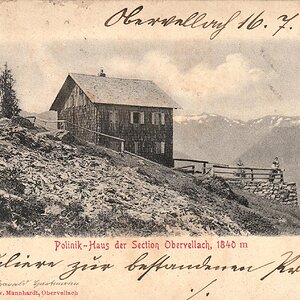 Obervellach 16. 7.
Polinik-Haus der Section Obervellach, 1840 m
zur bestandenen
v. Mannhardt, Obervellach